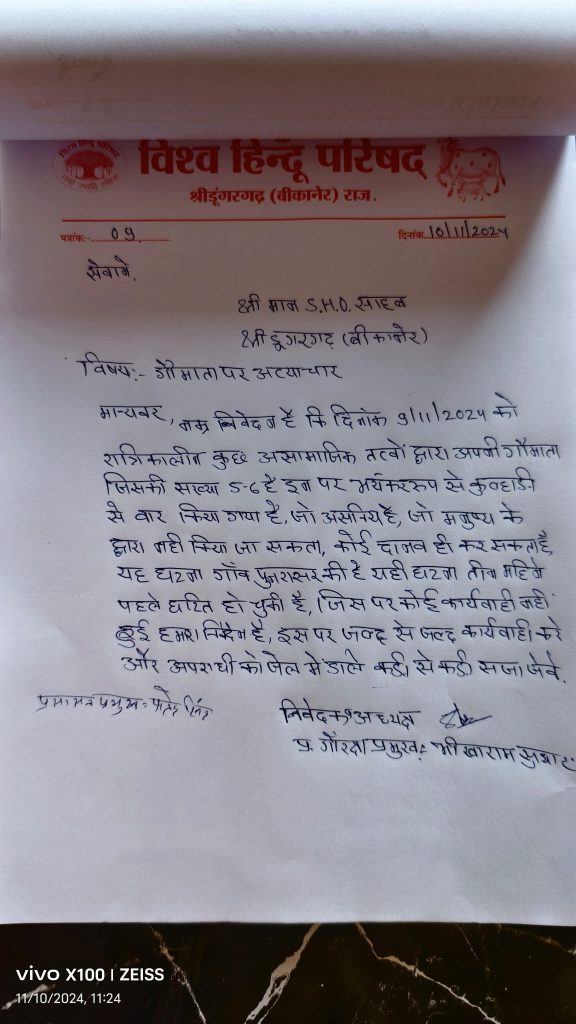 विश्व हिन्दू परिषद्
श्रीडूंगरगढ़ (बीकानेर) राज.
पत्रांक:- 09
दिनांक 10/11/2024
सेवामे,
श्री मान S.H.O. साहब
श्री डूंगरगढ़ (बीकानेर)
विषय:- गौमाता पर अत्याचार
मान्यवर, नम्र निवेदन है कि दिनांक 9/11/2024 को
रात्रिकालीन कुछ असामाजिक तत्वों द्वारा अपनी गौमाता
जिसकी सख्या 5-6 है इन पर भयंकररुप से कुल्हाडी
से वार किया गया है, जो असनिय है, जो मनुष्य के
द्वारा नही किया जा सकता, कोई दानव ही कर सकता है,
यह घटना गाँव पुनरासर की है यही घटना तीन महिने
पहले घटित हो चुकी है, जिस पर कोई कार्यवाही नही
हुई हमारा निवेदन है, इस पर जल्द से जल्द कार्यवाही करे
और अपराधी को जेल मे डाले कडी से कडी सजा देवे.
निवेदक अध्यक्ष
प्र. गौरक्षा प्रमुख: भीखाराम
vivo X100 | ZEISS
11/10/2024, 11:24